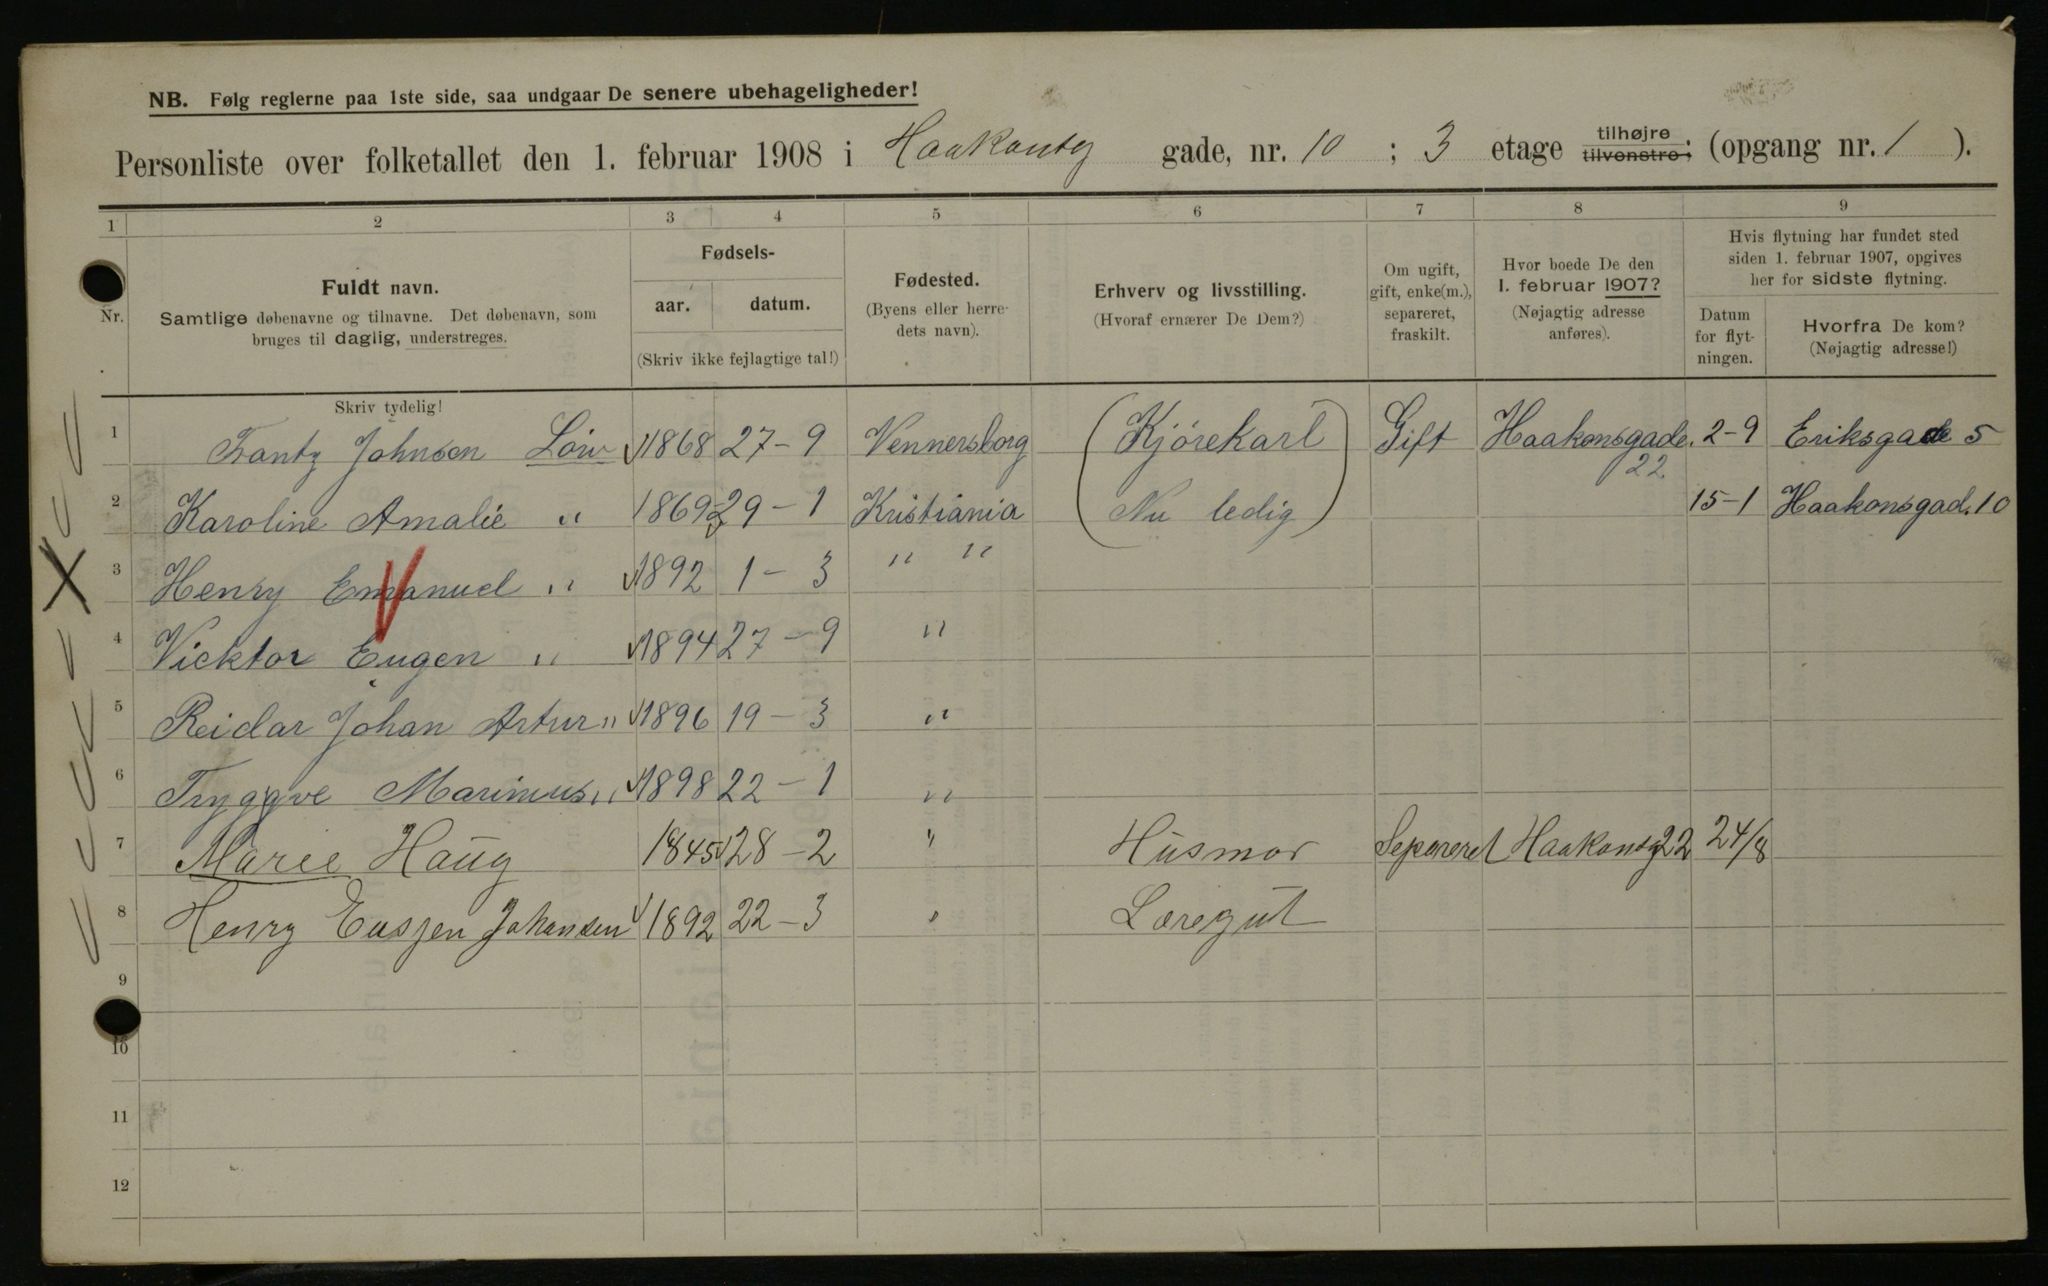 NB. Følg reglerne paa 1ste side, saa undgaar De senere ubehageligheder!
Personliste over folketallet den 1. februar 1908 i Haakonsg gade, nr. 10 ; 3 etage tilhøjre tilvenstre; (opgang nr. 1 ).
1 2 3 4 5 6 7 8 9
Nr.
Fuldt navn.
Samtlige døbenavne og tilnavne. Det døbenavn, som
bruges til daglig, understreges.
Skriv tydelig!
Fødsels-
aar. datum.
(Skriv ikke fejlagtige tal!)
Fødested.
(Byens eller herre-
dets navn).
Erhverv og livsstilling.
(Hvoraf ernærer De Dem?)
Om ugift,
gift, enke(m.),
separeret,
fraskilt.
Hvor boede De den
1. februar 1907?
(Nøjagtig adresse
anføres).
Hvis flytning har fundet sted
siden 1. februar 1907, opgives
her for sidste flytning.
Datum
for flyt-
ningen.
Hvorfra De kom?
(Nøjagtig adresse!)
1 Frantz Johnsen 1868 27-9 Vennersborg (Kjørekarl Gift Haakonsgade 22 2-9 Eriksgade 5
2 Karoline Amalie " 1869 29-1 Kristiania Nu ledig) 15-1 Haakonsgad. 10
3 Henry Emanuel " 1892 1-3 " "
4 Vicktor Eugen " 1894 27-9 "
5 Reidar Johan Artur " 1896 19-3 "
6 Tryggve Marinius " 1898 22-1 "
7 Maree Haug 1845 28-2 " Husmor Separeret Haakonsg 22 24/8
8 Henry Eusjen Johansen 1892 22-3 " Læregut
9
10
11
12